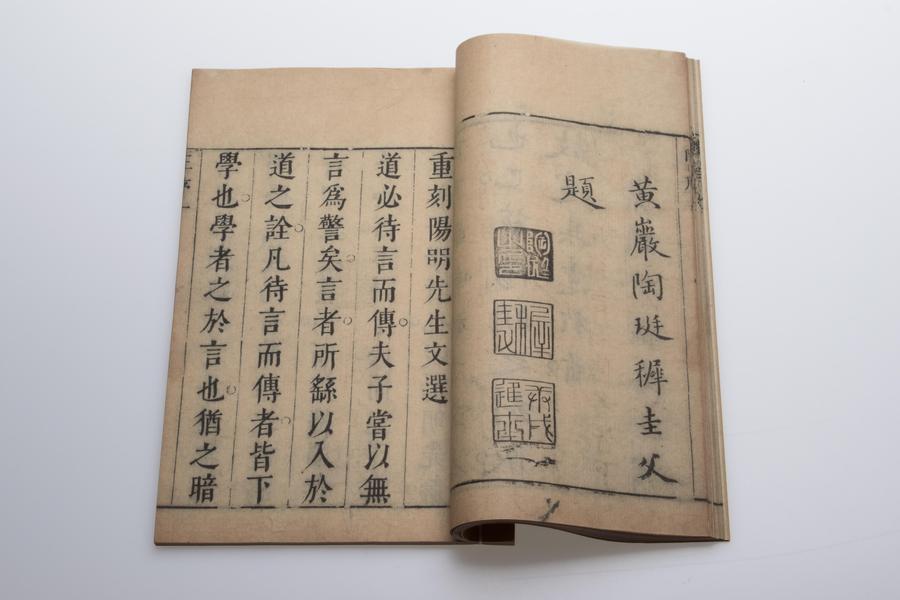 黃巖陶珽穉圭父
題
重刻陽明先生文選
道必待言而傳夫子嘗以無
言爲警矣言者所繇以入於
道之詮凡待言而傳者皆下
學也學者之於言也猶之暗